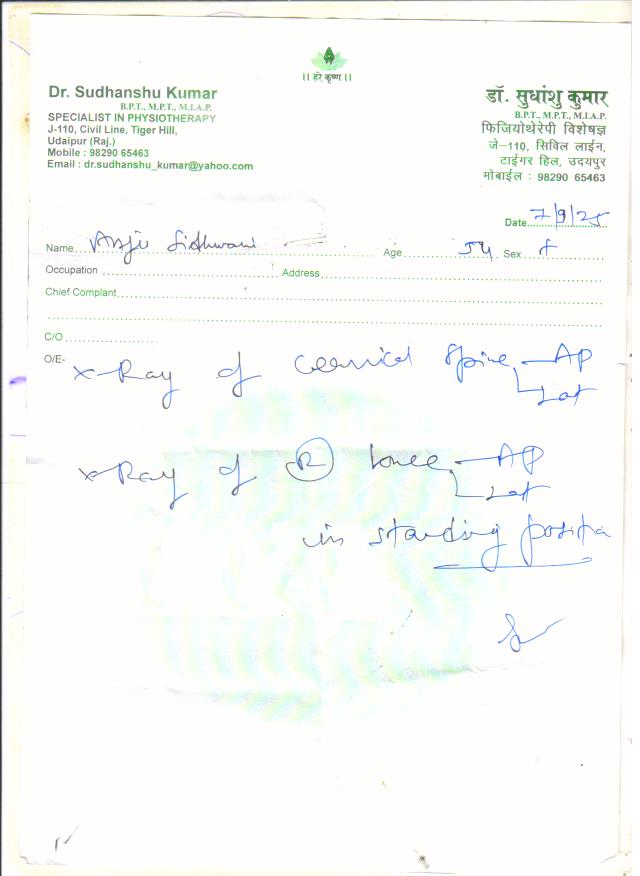 ।। हरे कृष्ण ।।
Dr. Sudhanshu Kumar
B.P.T., M.P.T., M.I.A.P.
SPECIALIST IN PHYSIOTHERAPY
J-110, Civil Line, Tiger Hill,
Udaipur (Raj.)
Mobile : 98290 65463
Email : dr.sudhanshu_kumar@yahoo.com
डॉ. सुधांशु कुमार
B.P.T., M.P.T., M.I.A.P.
फिजियोथेरेपी विशेषज्ञ
जे-110, सिविल लाईन,
टाईगर हिल, उदयपुर
मोबाईल : 98290 65463
Date 7/9/25
Name Anju Sidhwani Age 54 Sex F
Occupation Address
Chief Complant
C/O
O/E- X-Ray of Cervical Spine AP
Lat
X-Ray of R knee AP
Lat
in standing position